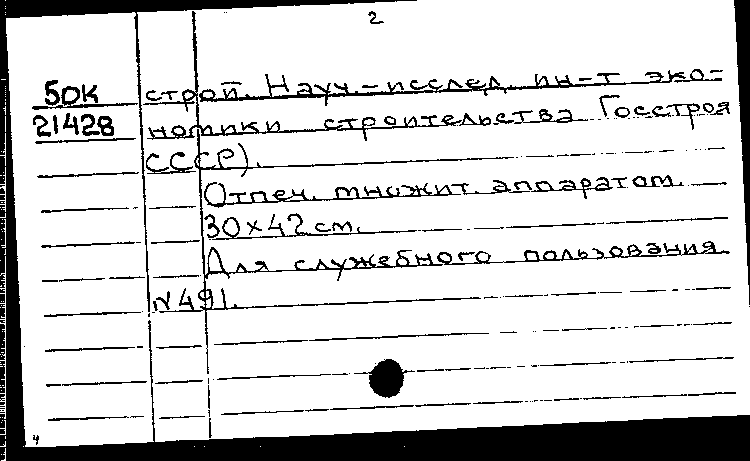 2
50К строй. Науч.-исслед. ин-т эко-
21428 номики строительства Госстроя
СССР).
Отпеч. множит. аппаратом.
30х42 см.
Для служебного пользования
N 491.
4